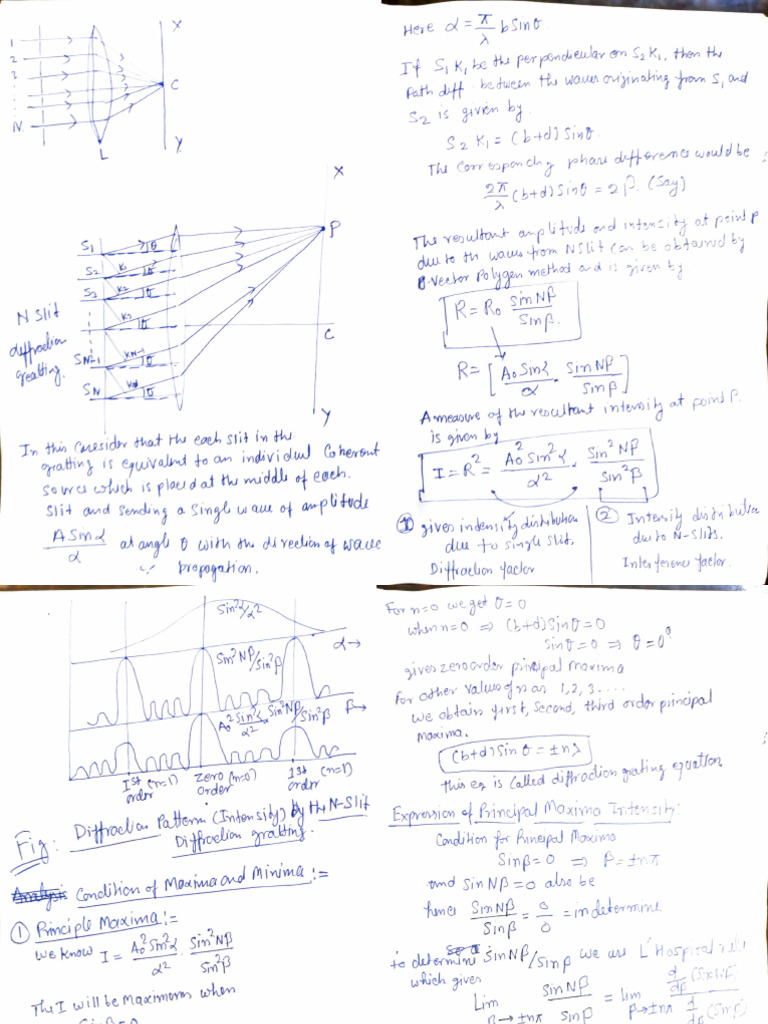 1
2
3
N
L
X
C
Y
X
S1
S2
S3
SN-1
SN
K1
K2
K3
KN-1
KN
θ
θ
θ
θ
θ
θ
P
C
Y
N Slit
diffraction
gratting.
In this consider that the each slit in the
gratting is equivalent to an individual Coherent
source which is placed at the middle of each.
Slit and sending a Single wave of amplitude
A Sinα/α at angle θ with the direction of wave
propogation.
Here α = π/λ b Sinθ
If S1 K1 be the perpendicular on S2 K1, then the
Path diff. between the waves originating from S1 and
S2 is given by.
S2 K1 = (b+d) Sinθ.
The corresponding phase difference would be
2π/λ (b+d) Sinθ = 2β. (Say)
The resultant amplitude and intensity at point p
due to th waves from N Slit can be obtained by
Vector Polygen method and is given by
R = R0 sinNβ/Sinβ.
R = [A0 Sinα/α . SinNβ/Sinβ]
A measure of the resultant intensity at point P.
is given by
I = R² = A0² Sin²α/α² . Sin²Nβ/Sin²β
① gives intensity distribution
due to single slit.
Diffraction factor
② Intensity distribution
due to N-Slits.
Interference factor.
Sin²α/α²
α→
Sin²Nβ/Sin²β
A0² Sin²α/α² . Sin²Nβ/Sin²β
β→
1st (n=1)
order
zero (n=0)
order
1st (n=1)
order
Fig: Diffraction Pattern (Intensity) by the N-Slit
Diffraction gratting.
Analysis Condition of Maxima and Minima:=
① Principle Maxima:=
We know I = A0² Sin²α/α² . Sin²Nβ/Sin²β
The I will be Maximum when
Sinβ = 0
For n=0 we get θ=0
when n=0 ⇒ (b+d) Sinθ = 0
Sinθ = 0 ⇒ θ = 0°
gives zero order principal maxima
for other values of n as 1, 2, 3....
we obtain first, Second, third order principal
maxima.
(b+d) Sinθ = ±nλ
this eq is called diffraction grating equation
Expression of Principal Maxima Intensity:
Condition for Principal Maxima
Sinβ = 0 ⇒ β = ±nπ
and SinNβ = 0 also be
hence SinNβ/Sinβ = 0/0 = indetermine
to determine SinNβ/Sinβ we use L' Hospital rule
which gives
Lim β→±nπ SinNβ/Sinβ = lim β→±nπ d/dβ (SinNβ)/d/dβ (Sinβ)